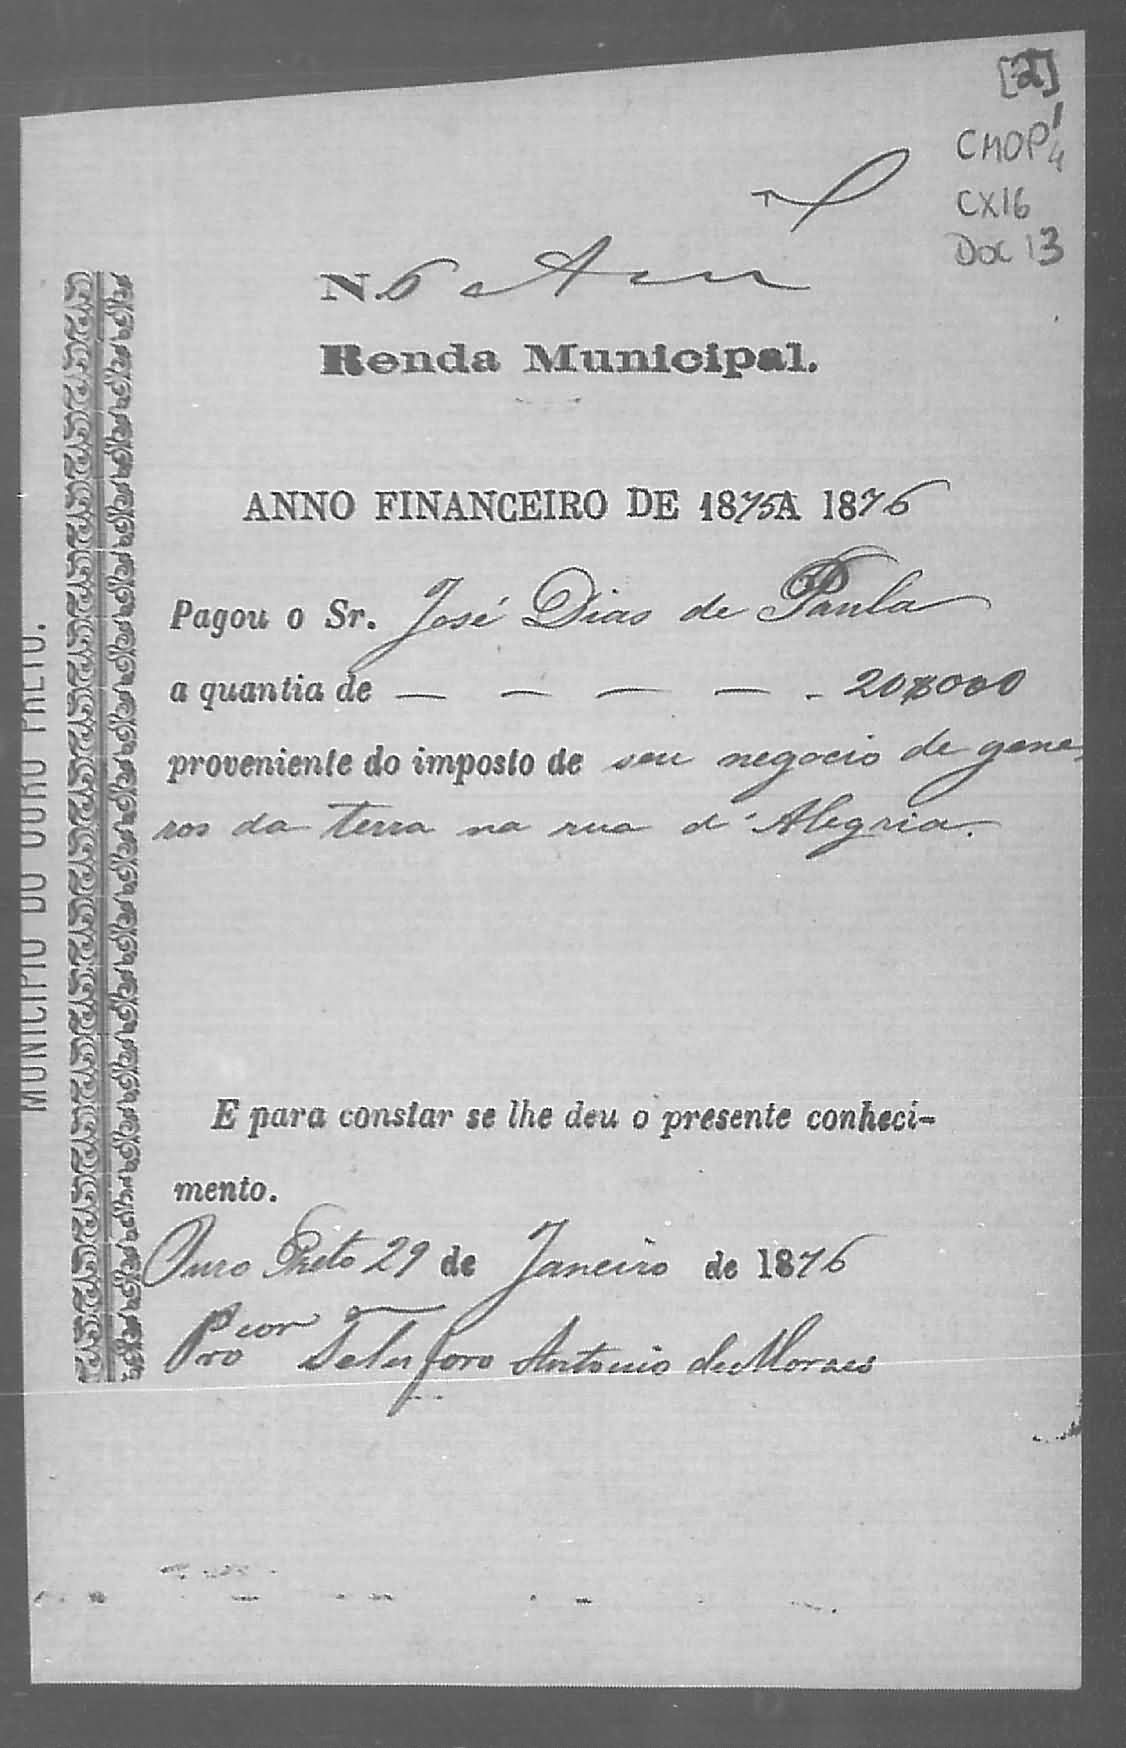 [2]
CMOP 1/4
CX16
Doc 13
N. 6
Renda Municipal.
ANNO FINANCEIRO DE 1875 A 1876
Pagou o Sr. José Dias de Paula
a quantia de — — — — - 20$000
proveniente do imposto de seu negocio de gene-
ros da terra na rua d'Alegria.
E para constar se lhe deu o presente conheci-
mento.
Ouro Preto 29 de Janeiro de 1876
Procor Telesforo Antonio de Moraes
MUNICIPIO DO OURO PRETO.